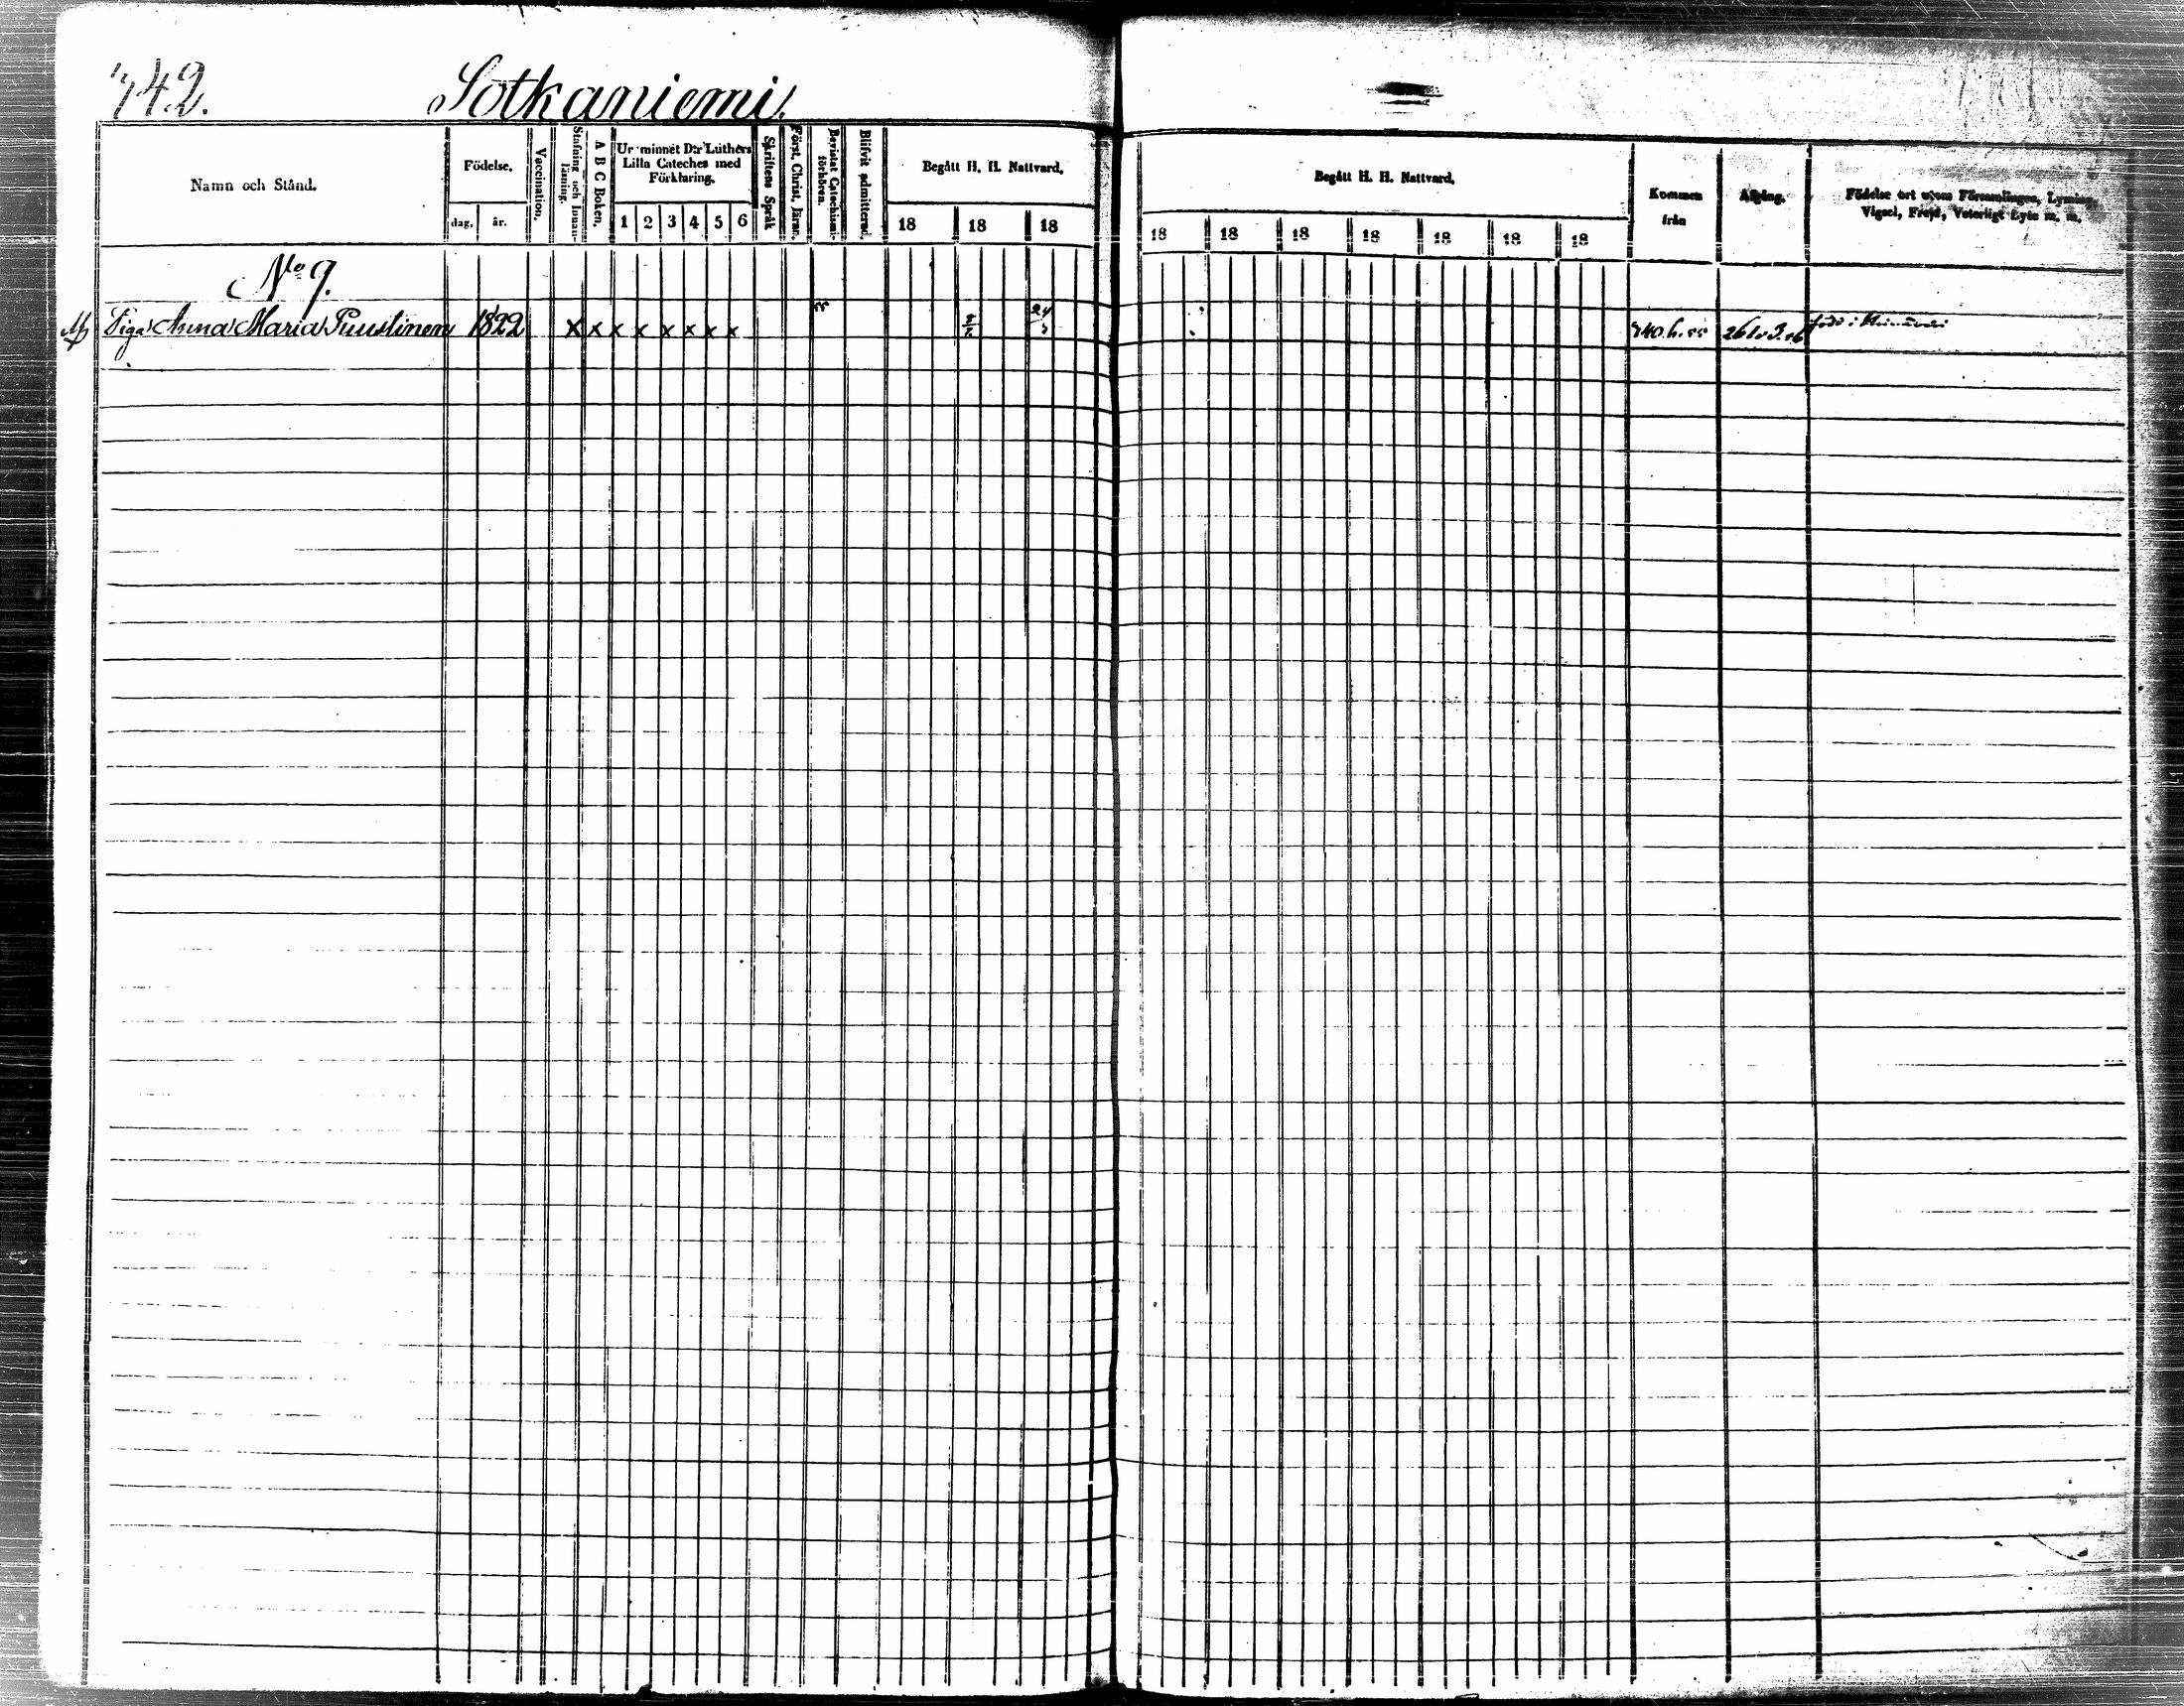 742.
Sotkaniemi.
Namn och Stånd.
Födelse.
dag.
år.
Vaccination.
Stafning och Innanläsning.
A B C Boken.
Ur minnet D:r Luthers
Lilla Cateches med
Förklaring.
1 2 3 4 5 6
Skriftens Språk
Först. Christ. Järan.
Bevistat Catechismiförhören.
Blifvit admitterad.
Begått H. H. Nattvard.
18 18 18
Begått H. H. Nattvard.
18 18 18 18 18 18 18
Kommen
från
Afgång.
Födelse ort utom Församlingen, Lysning,
Vigsel, Frejd, Veterligt Lyte m. m.
No 9.
Piga Anna Maria Puustinen 1822 x x x x x x x x 55 24 740.h.55 född i